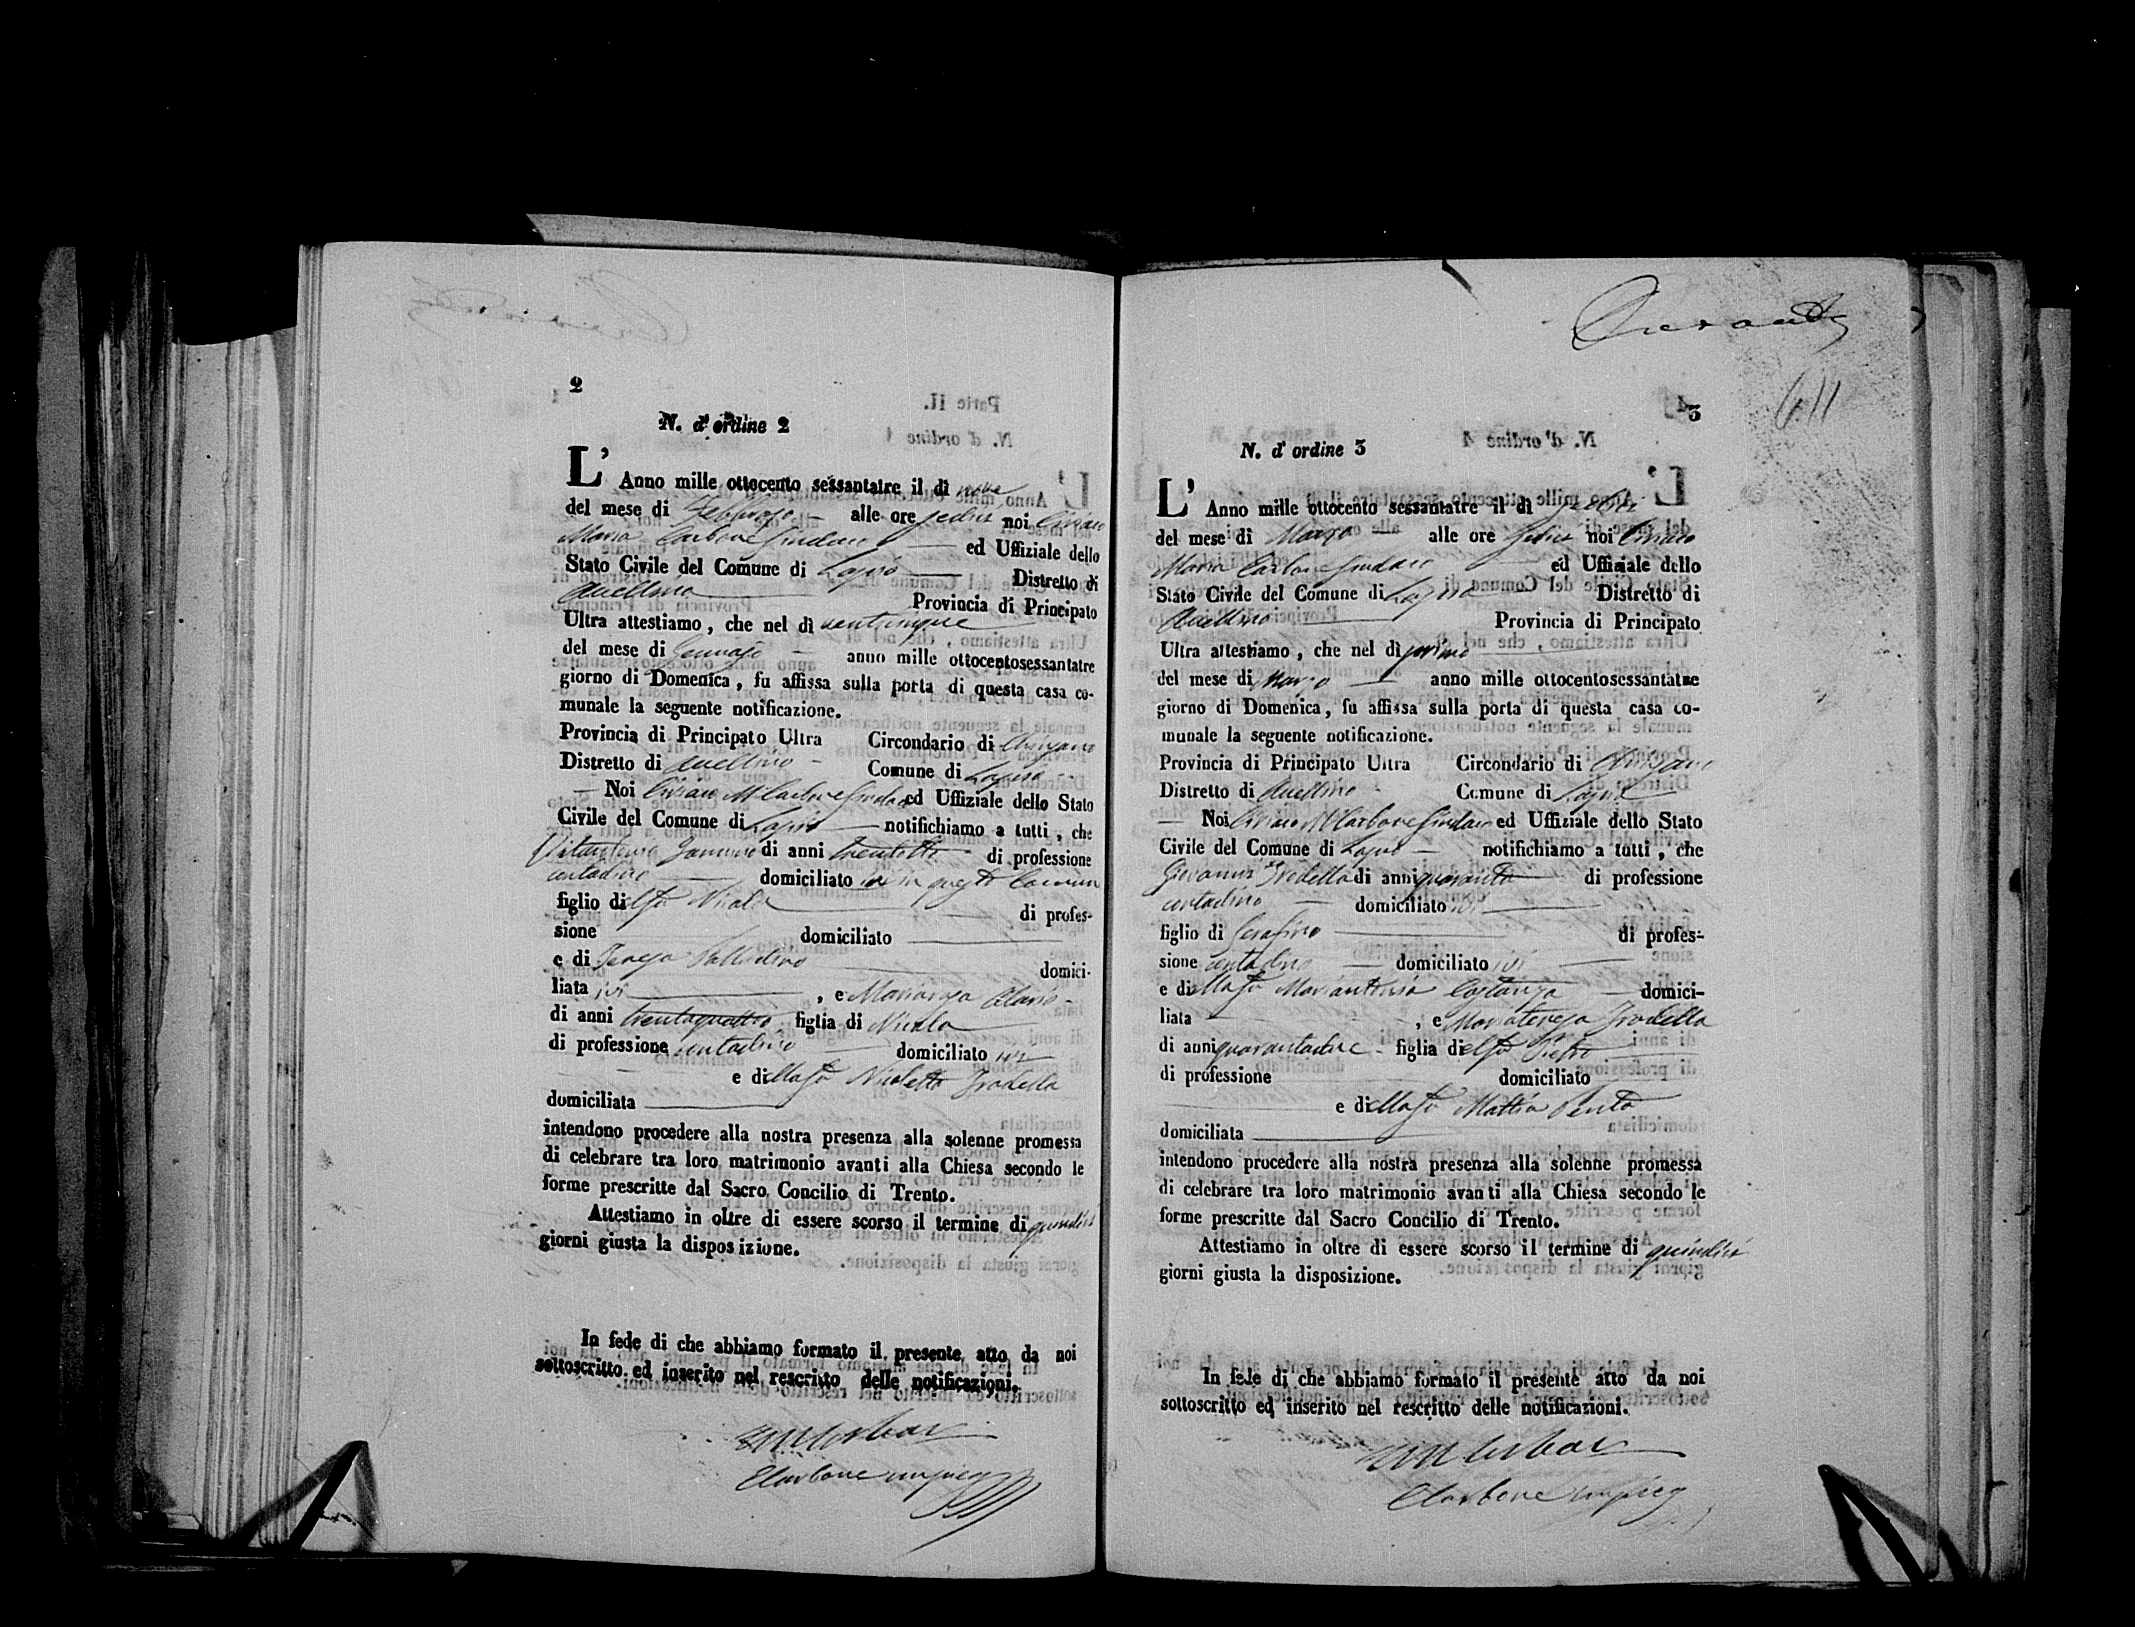 2
N. d'ordine 2
L'Anno mille ottocento sessantatre il dì nove
del mese di Febbrajo alle ore sedici noi Ciriaco
Maria Carbone Sindaco ed Uffiziale dello
Stato Civile del Comune di Lapio Distretto di
Avellino Provincia di Principato
Ultra attestiamo, che nel dì venticinque
del mese di Gennajo anno mille ottocentosessantatre
giorno di Domenica, fu affissa sulla porta di questa casa co-
munale la seguente notificazione.
Provincia di Principato Ultra Circondario di Chiusano
Distretto di Avellino Comune di Lapio
Noi Ciriaco M. Carbone Sindaco ed Uffiziale dello Stato
Civile del Comune di Lapio notifichiamo a tutti, che
di anni trentotto di professione
contadino domiciliato in questo Comune
figlio di Nicola di profes-
sione domiciliato
e di Teresa Palladino domici-
liata ivi, e Marianna
di anni trentaquattro figlia di Nicola
di professione contadino domiciliato ivi
e di Nicoletta Trodella
domiciliata
intendono procedere alla nostra presenza alla solenne promessa
di celebrare tra loro matrimonio avanti alla Chiesa secondo le
forme prescritte dal Sacro Concilio di Trento.
Attestiamo in oltre di essere scorso il termine di quindici
giorni giusta la disposizione.
In fede di che abbiamo formato il presente atto da noi
sottoscritto ed inserito nel rescritto delle notificazioni.
3
N. d'ordine 3
L'Anno mille ottocento sessantatre il dì
del mese di Marzo alle ore sedici noi Ciriaco
Maria Carbone Sindaco ed Uffiziale dello
Stato Civile del Comune di Lapio Distretto di
Avellino Provincia di Principato
Ultra attestiamo, che nel dì primo
del mese di Marzo anno mille ottocentosessantatre
giorno di Domenica, fu affissa sulla porta di questa casa co-
munale la seguente notificazione.
Provincia di Principato Ultra Circondario di Chiusano
Distretto di Avellino Comune di Lapio
Noi Ciriaco M Carbone Sindaco ed Uffiziale dello Stato
Civile del Comune di Lapio notifichiamo a tutti, che
Giovanni Trodella di anni quaranta di professione
contadino domiciliato ivi
figlio di Serafino di profes-
sione contadino domiciliato ivi
e di Mariantonia Costanza domici-
liata, e Mariateresa Trodella
di anni figlia di Pietro
di professione domiciliato
e di Mattia Pento
domiciliata
intendono procedere alla nostra presenza alla solenne promessa
di celebrare tra loro matrimonio avanti alla Chiesa secondo le
forme prescritte dal Sacro Concilio di Trento.
Attestiamo in oltre di essere scorso il termine di quindici
giorni giusta la disposizione.
In fede di che abbiamo formato il presente atto da noi
sottoscritto ed inserito nel rescritto delle notificazioni.